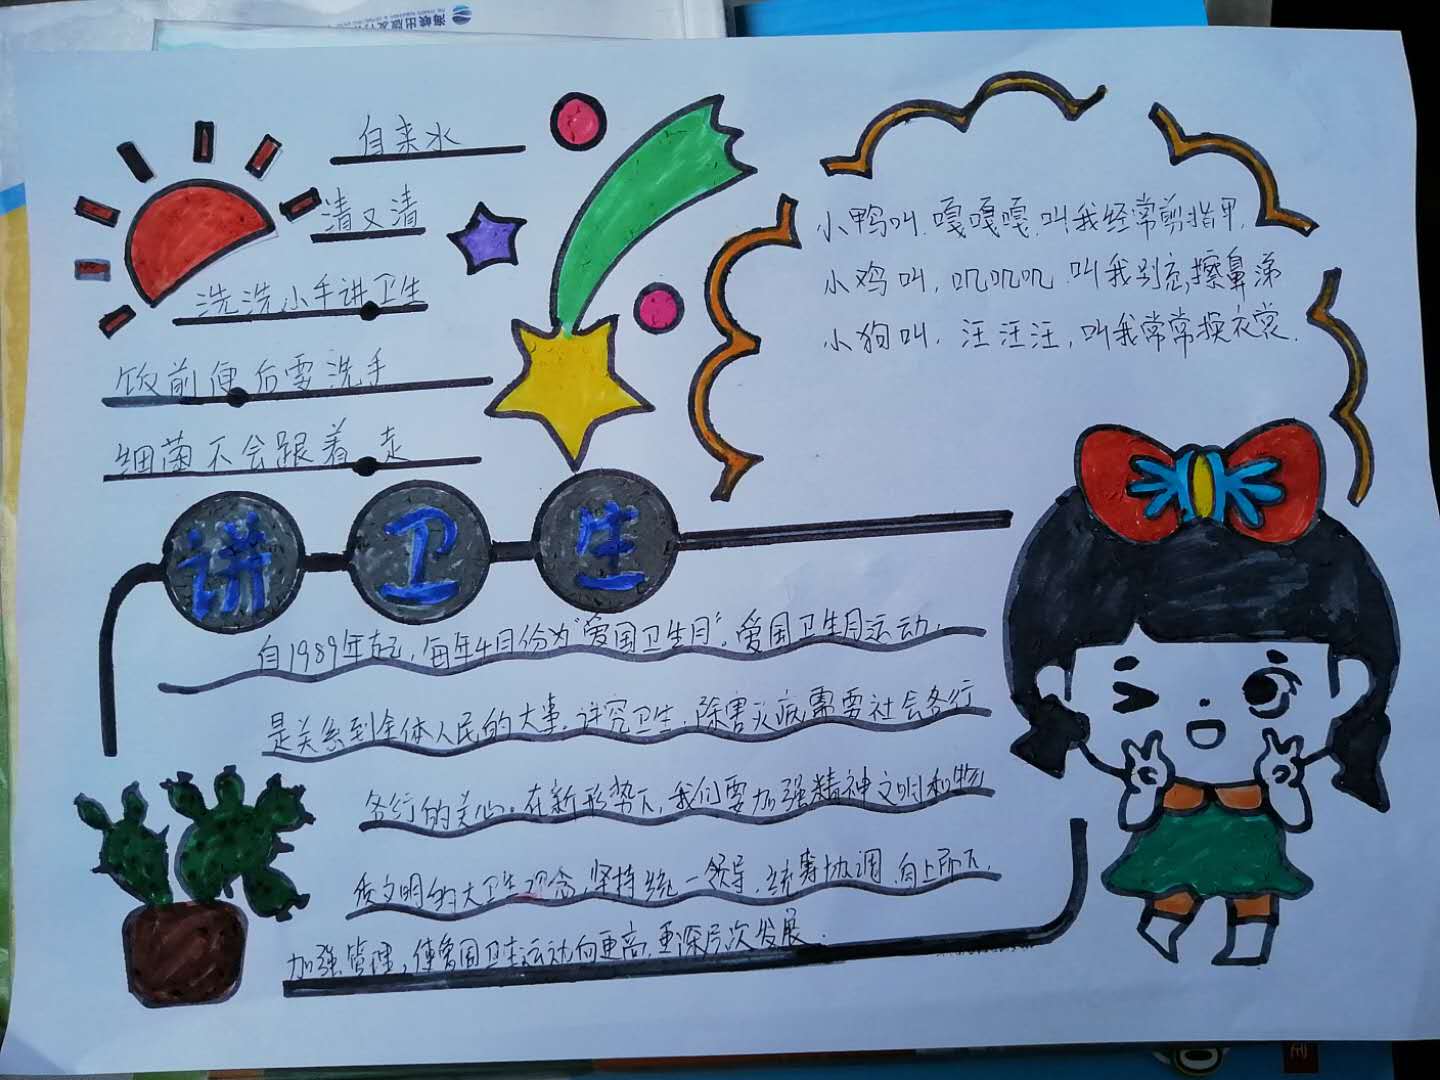 海峡出版发
自来水
清又清
洗洗小手讲卫生
饭前便后要洗手
细菌不会跟着走
小鸭叫,嘎嘎嘎,叫我经常剪指甲,
小鸡叫,叽叽叽,叫我别忘擦鼻涕
小狗叫,汪汪汪,叫我常常换衣裳.
讲卫生
自1989年起,每年4月份为“爱国卫生月”。爱国卫生月运动,
是关系到全体人民的大事,讲究卫生,除害灭病,需要社会各行
各行的关心。在新形势下,我们要加强精神文明和物
质文明的大卫生观念,坚持统一领导,统筹协调,自上而下,
加强管理,使爱国卫生运动向更高,更深层次发展.